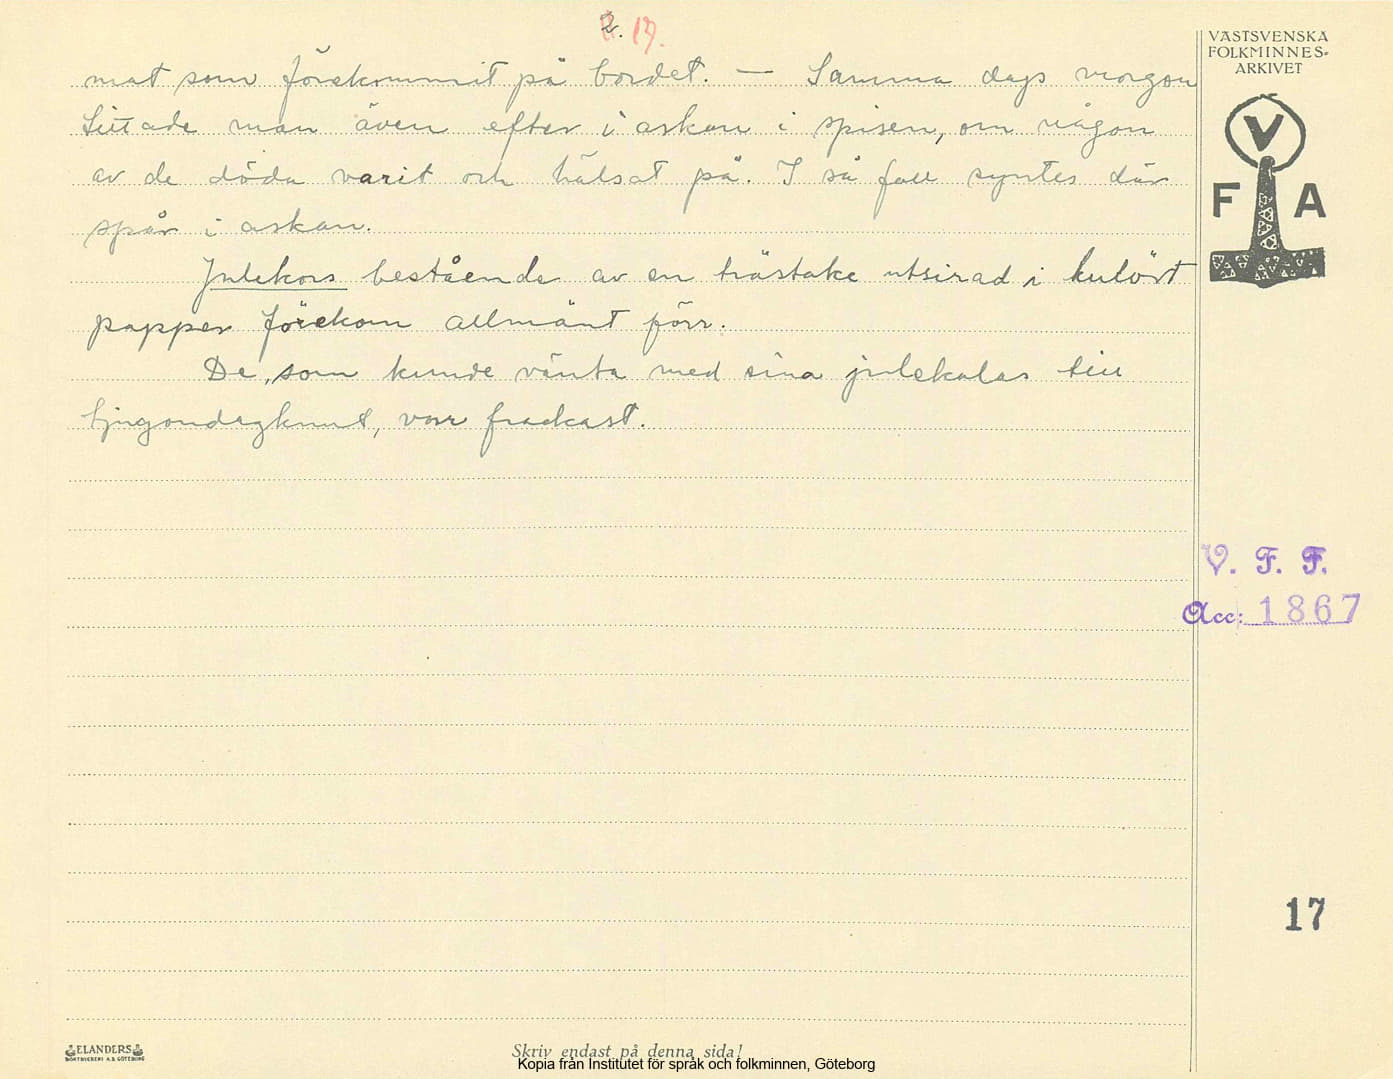 2. 17.
VÄSTSVENSKA
FOLKMINNES-
ARKIVET
mat som förekommit på bordet. — Samma dags morgon
tittade man även efter i askan i spisen, om någon
av de döda varit och hälsat på. I så fall syntes där
spår i askan.
Julekors bestående av en trästake utsirad i kulört
papper förekom allmänt förr.
De, som kunde vänta med sina julekalas till
tjugondagknut, voro
V
F A
V. F. F.
Acc: 1867
17
ELANDERS
BOKTRYCKERI A.B. GÖTEBORG
Skriv endast på denna sida!
Kopia från Institutet för språk och folkminnen, Göteborg